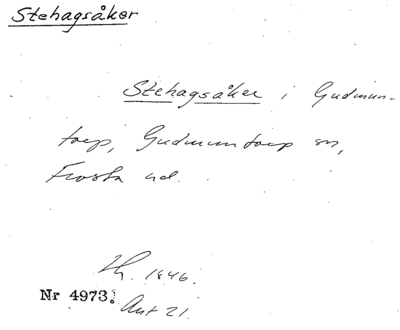 Stehagsåker
Stehagsåker i Gudmun-
torp, Gudmuntorp sn,
Frosta hd.
Lh. 1846.
Nr 4973.
Ant 21.